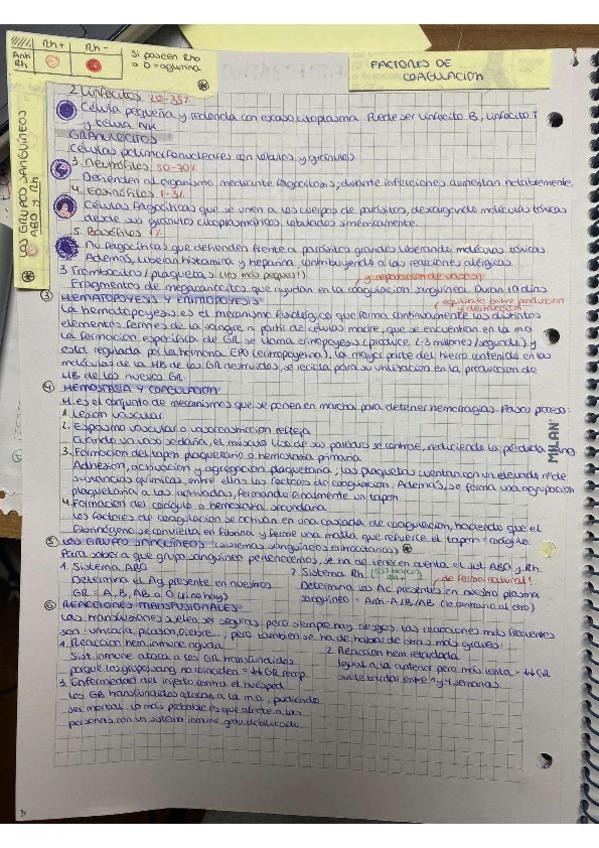 Rh + Rh -
Anti Rh
Si poseen Rho
o D = aglutina
FACTORES DE
COAGULACIÓN
LOS GRUPOS SANGUÍNEOS
ABO y Rh
2. Linfocitos 20-35%
Célula pequeña y redonda con escaso citoplasma. Puede ser linfocito B, linfocito T
y célula NK
GRANULOCITOS
Células polimorfonucleares con lóbulos y gránulos
3. Neutrófilos 50-70%
Defienden al organismo mediante fagocitosis, durante infecciones aumentan notablemente.
4. Eosinófilos 1-3%
Células fagocíticas que se unen a los cuerpos de parásitos, descargando moléculas tóxicas
desde sus gránulos citoplasmáticos lobulados simétricamente.
5. Basófilos 1%
No fagocíticas que defienden frente a parásitos grandes liberando moléculas tóxicas
Además, liberan histamina y heparina, contribuyendo a las reacciones alérgicas.
3. Trombocitos/plaquetas (los más pequeños!)
y reparación de vasos
Fragmentos de megacariocitos que ayudan en la coagulación sanguínea. Duran 10 días
3 HEMATOPOYESIS Y ERITROPOYESIS
equilibrio entre producción
y destrucción
La hematopoyesis es el mecanismo fisiológico que forma continuamente los distintos
elementos formes de la sangre a partir de células madre, que se encuentran en la mo
La formación específica de GR se llama eritropoyesis (produce 2-3 millones/segundo) y
está regulada por la hormona EPO (eritropoyetina). La mayor parte del hierro contenido en las
moléculas de la HB de los GR destruidos, se recicla para su utilización en la producción de
HB de los nuevos GR.
4 HEMOSTASIA Y COAGULACIÓN
H. es el conjunto de mecanismos que se ponen en marcha para detener hemorragias. Pasos proceso:
1. Lesión vascular
2. Espasmo vascular o vasoconstricción refleja
Cuando un vaso se daña, el músculo liso de sus paredes se contrae, reduciendo la pérdida sang
3. Formación del tapón plaquetario o hemostasia primaria
Adhesión, activación y agregación plaquetaria, las plaquetas cuentan con un elevado nº de
sustancias químicas, entre ellas los factores de coagulación. Además, se forma una agrupación
plaquetaria a las activadas, formando finalmente un tapón
4. Formación del coágulo o hemostasia secundaria
Los factores de coagulación se activan en una cascada de coagulación, haciendo que el
fibrinógeno se convierta en fibrina y forme una malla que refuerce el tapón = coágulo
5 LOS GRUPO SANGUÍNEOS (sistemas sanguíneos eritrocitarios)
Para saber a que grupo sanguíneo pertenecemos, se ha de tener en cuenta el sist. ABO y Rh.
1. Sistema ABO
Determina el Ag presente en nuestros
GR = A, B, AB o O (si no hay)
2. Sistema Rh
de forma natural!
Determina los Ac presentes en nuestro plasma
sanguíneo = Anti-A/B/AB (lo contrario al otro)
6 REACCIONES TRANSFUSIONALES
Las transfusiones suelen ser seguras, pero siempre hay riesgos. Las reacciones más frecuentes
son: urticaria, picazón, fiebre..., pero también se ha de hablar de otras más graves:
1. Reacción hem. inmune aguda
Sist. inmune ataca a los GR transfundidos
porque los grupos sang. no coinciden = ↓↓ GR recep.
2. Reacción hem. retardada
Igual a la anterior pero más lenta = ↓↓ GR
suele tardar entre 1 y 4 semanas
3. Enfermedad del injerto contra el huésped
Los GB transfundidos atacan a la m.o, pudiendo
ser mortal. Lo más probable es que afecte a las
personas con un sistema inmune grav. debilitado
MILAN